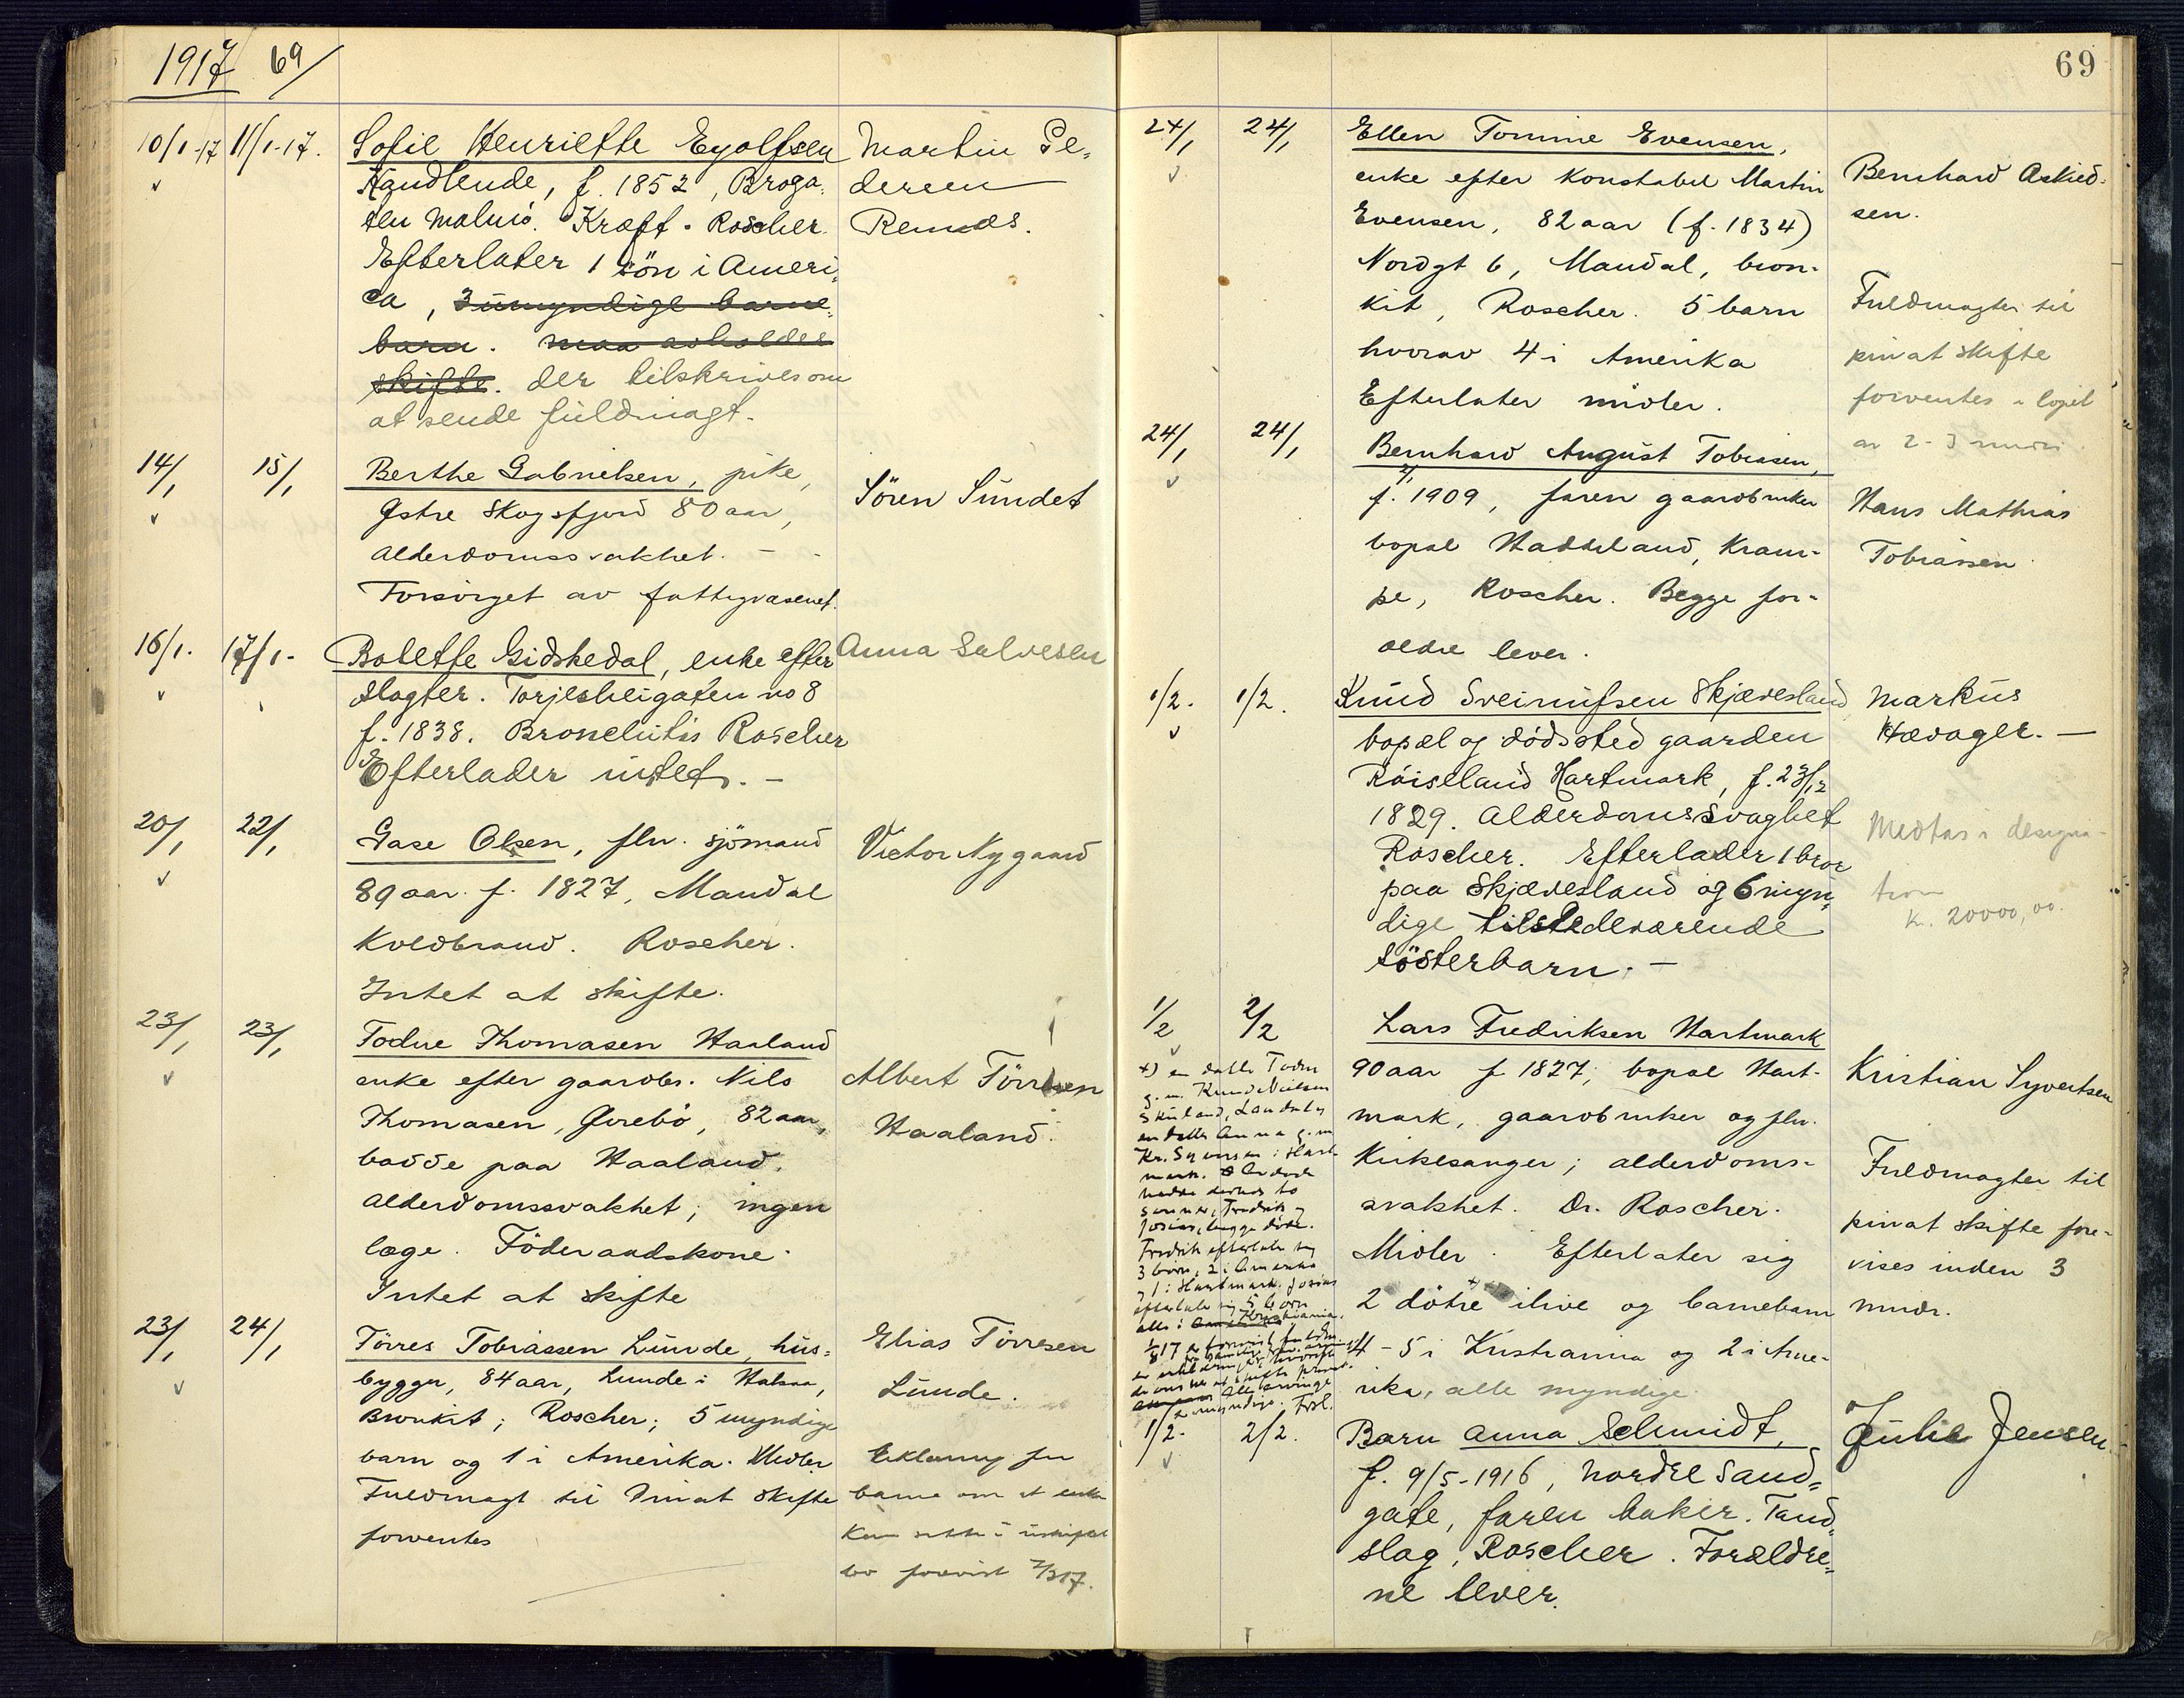 1917 69/
10/1-17 11/1-17. Sofie Henriette Eyolfsen Martin Pe-
Handlende, f. 1852, Broga- dersen
ten Malmö. Kræft. Roscher. Remes.
Efterlater 1 sön i Ameri-
ca, 3 umyndige barne-
barn. maa avholdes
skifte. der tilskrives om
at sende fuldmagt.
14/1 15/1 Berthe Gabrielsen, pike,
Østre Skogsfjord 80 aar, Sören Sundet
Alderdomssvakhet. -
Forsörget av fattigvæsenet.
16/1. 17/1- Bolette Gidskedal, enke efter Anna Salvesen
Slagter. Torjesheigaten no 8
f. 1838. Bronchitis Roscher
Efterlader intet. -
20/1 22/1 Gase Olsen, fhv. sjömand Victor Nygaard
89 aar f. 1827, Mandal
Koldbrand. Roscher.
Intet at skifte.
23/1 23/1 Todne Thomasen Haaland
enke efter gaardbr. Nils Albert Törresen
Thomasen, Øvrebö, 82 aar, Haaland.
bodde paa Haaland.
Alderdomssvakhet; ingen
læge. Föderaadskone.
Intet at skifte
23/1 24/1 Törres Tobiassen Lunde, hus- Elias Törresen
bygger, 84 aar, Lunde i Halsaa, Lunde.
Bronkit; Roscher; 5 myndige
barn og 1 i Amerika. Midler Erklæring fra
Fuldmagt til Privat skifte barna om at enken
forventes kan sitte i uskiftet
bo forevist 2/3 17.
69
24/1 24/1 Ellen Tomine Evensen,
enke efter Konstabel Martin Bernhard Askild-
Evensen, 82 aar (f. 1834) sen.
Nordgt 6, Mandal, bron-
kit, Roscher. 5 barn Fuldmagter til
hvorav 4 i Amerika privat skifte
Efterlater midler. forventes i löpet
av 2-3 mndr.
24/1 24/1 Bernhard August Tobiasen,
f. 1909, faren gaardbruker Hans Mathias
bopæl Haddeland, Kram- Tobiassen.
pe, Roscher. Begge for-
ældre lever.
1/2. 1/2. Knud Sveinufsen Skjævesland Markus
bopæl og dödssted gaarden Hævager. -
Röiseland Hartmark, f. 23/12
1829. Alderdomssvaghet Medtas i designa-
Roscher. Efterlader 1 bror tion
paa Skjævesland og 6 myn- kr. 20000,00.
dige tilstedeværende
sösterbarn. -
1/2 2/2 Lars Fredriksen Hartmark
90 aar f 1827; bopæl Hart- Kristian Syvertsen
mark, gaardbruker og fhv.
Kirkesanger; alderdoms- Fuldmagter til
svakhet. Dr. Roscher. privat skifte fore-
Midler. Efterlater sig vises inden 3
2 dötre x) ilive og barnebarn mndr.
4-5 i Kristiania og 2 i Ame-
rika, alle myndige.
x) en datter Todne
g.m. Knud Nielsen
Skuland, Laudal og
en datter Anna g.m
Kr. Syvertsen i Hart-
mark. Avdøde
hadde desuden to
sønner, Fredrik og
Josias, begge døde.
Fredrik efterlater sig
3 børn, 2 i Amerika
og 1 i Hartmark. Josias
efterlater sig 5 børn
alle i Kristiania.
1/2. 2/2. Barn Anna Schmidt, Julie Jensen
f. 9/5-1916, nordre Sand-
gate, faren baker. Tand-
slag, Roscher. Forældre-
ne lever.